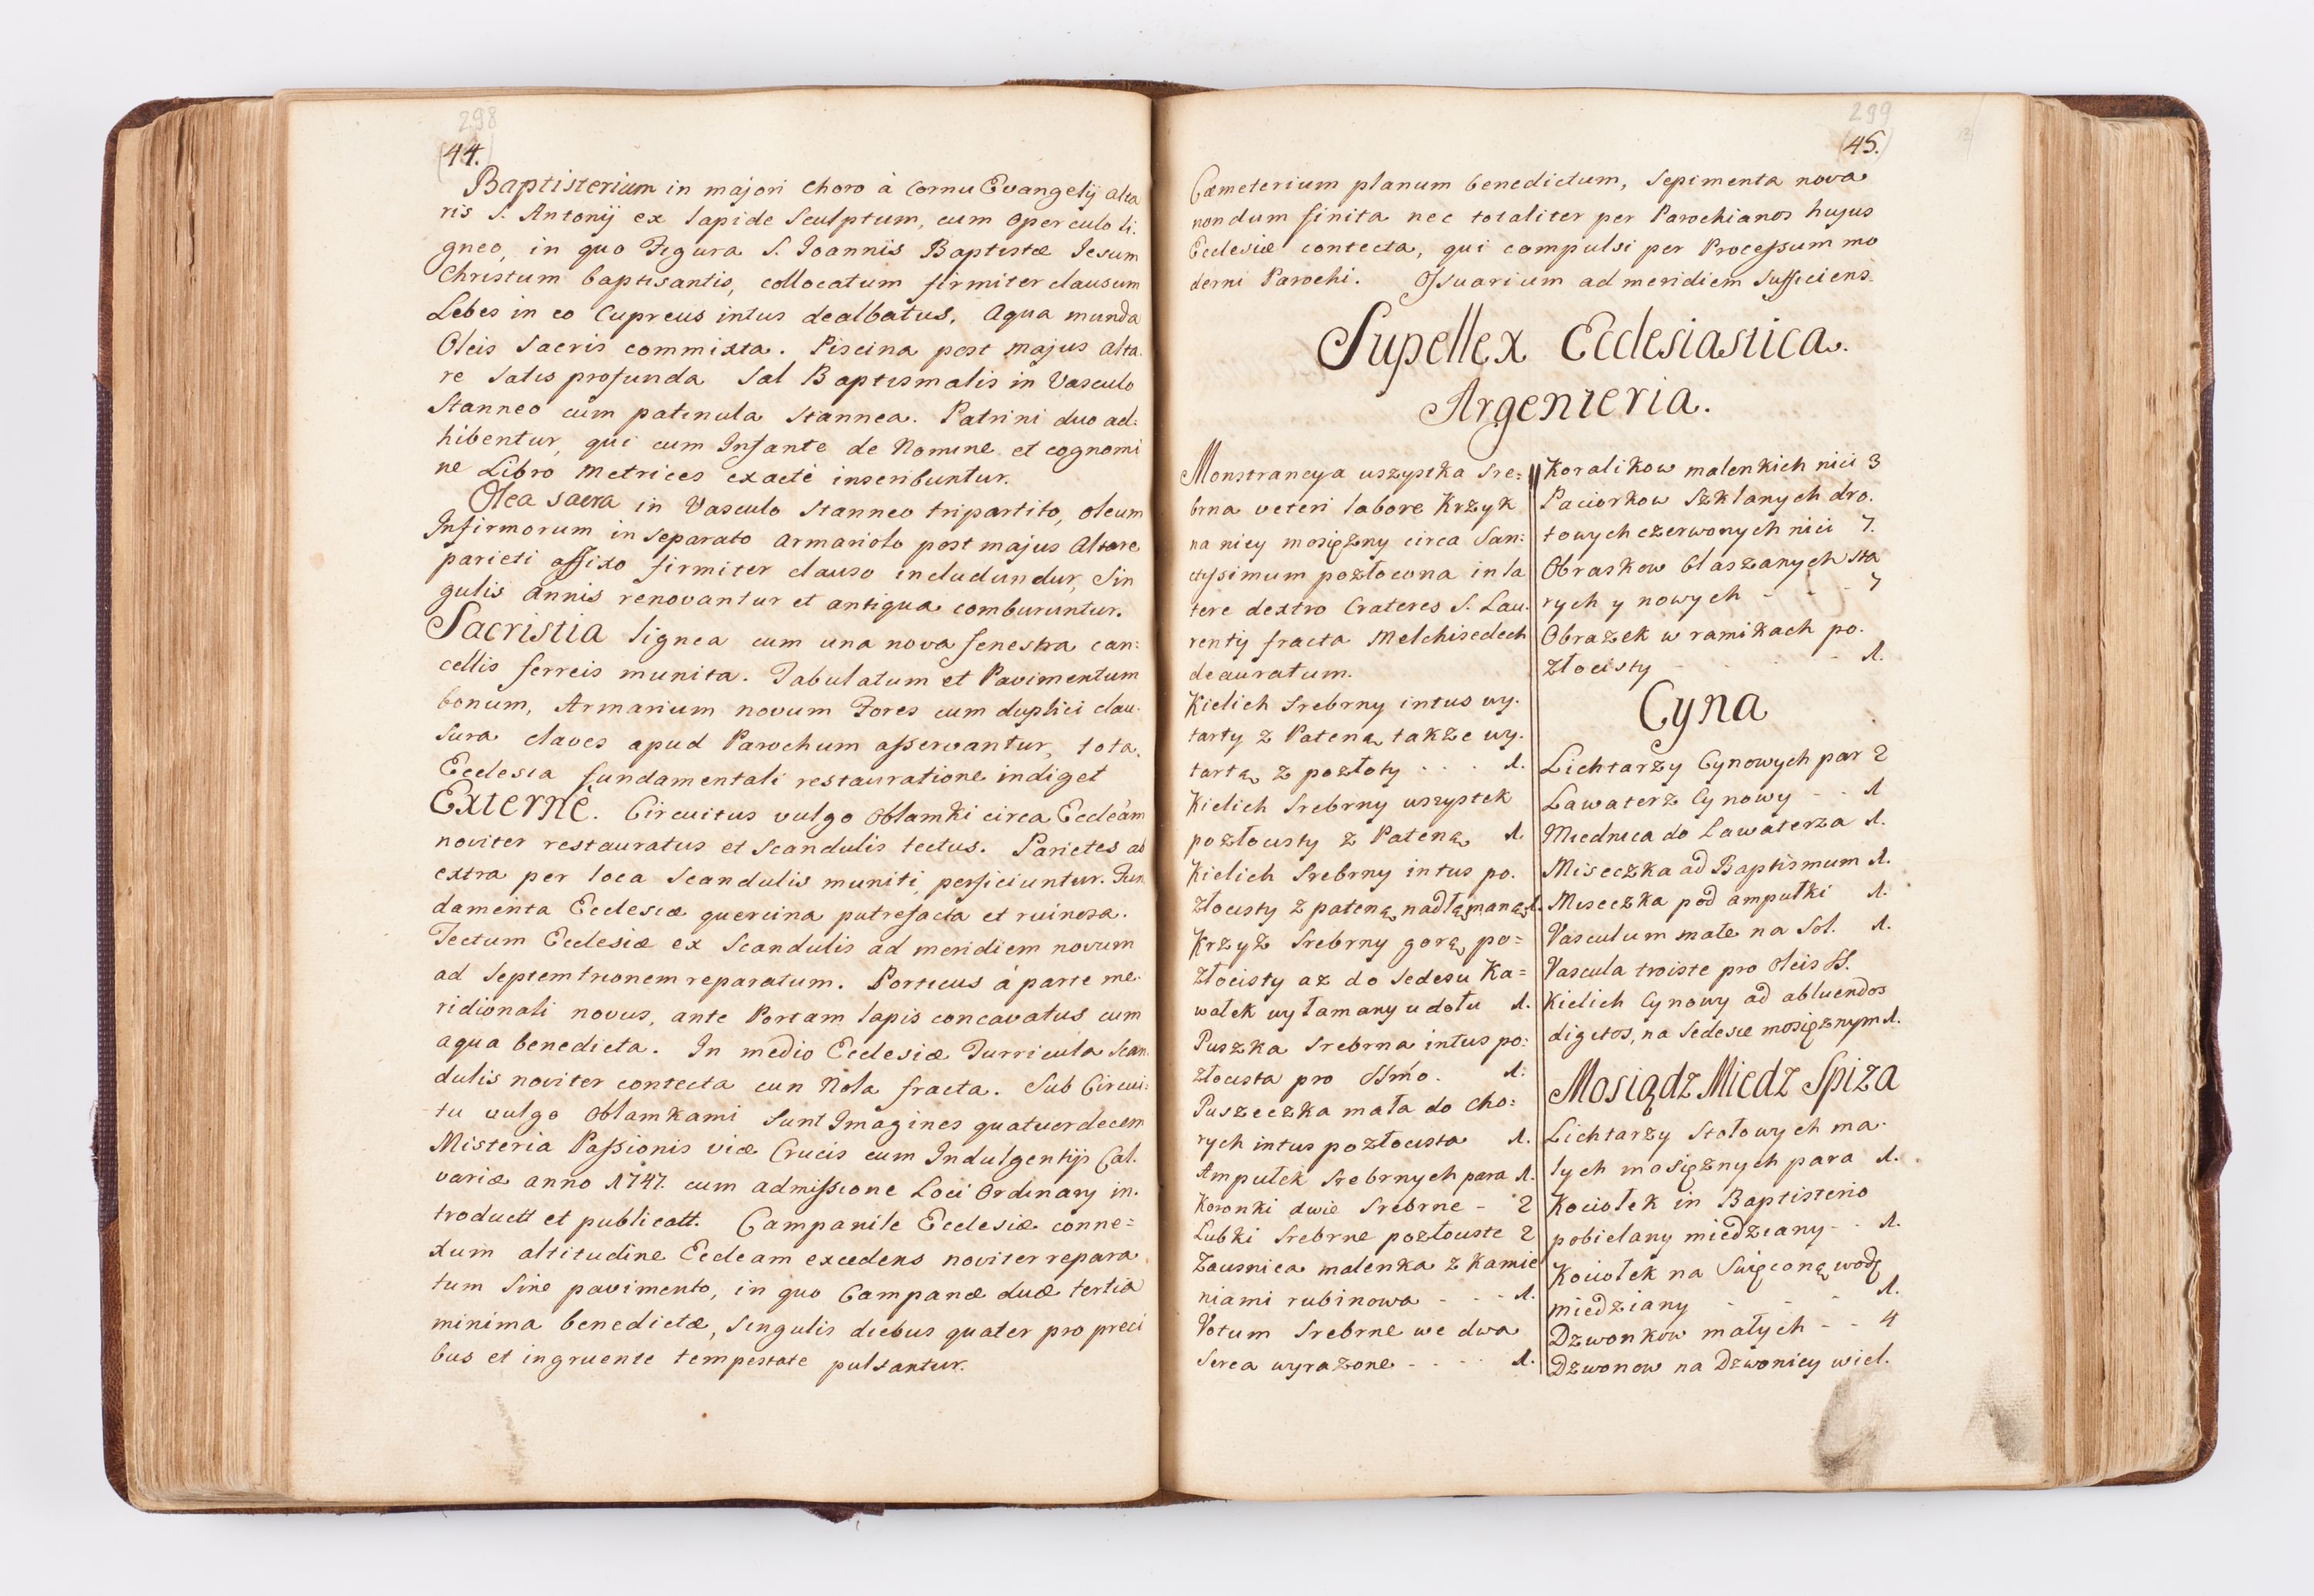 298
(44.)
Baptisterium in majori Choro à Cornu Evangelÿ Alta
ris S. Antonÿ ex lapide Sculptum, cum Operculo li:
gneo, in quo Figura S. Joannis Baptistæ Jesum
Christum baptisantis, collocatum firmiter clausum
Lebes in eo Cupreus intus dealbatus. Aqua munda
Oleis Sacris commixta. Piscina post majus Alta.
re Satis profunda Sal Baptismalis in Vasculo
Stanneo cum patinula stannea. Patrini duo ad:
hibentur, qui cum Infante de Nomine et cognomi
ne Libro Metrices exacté inscribuntur.
Olea Sacra in Vasculo Stanneo tripartito, oleum
Infirmorum in Separato Armariolo post majus Altare
parieti affixo firmiter clauso includundur, Sin
gulis Annis renovantur et antiqua comburuntur.
Sacristia lignea cum una nova fenestra can:
cellis ferreis munita. Tabulatum et Pavimentum
bonum, Armarium novum Fores cum duplici clau.
Sura claves apud Parochum asservantur, tota
Ecclesia fundamentali restauratione indiget
Externé. Circuitus vulgo Obłamki circa Eccleam
noviter restauratus et Scandulis tectus. Parietes ad
extra per loca Scandulis muniti, perficiuntur. Fun
damenta Ecclesiæ quercina putrefacta et ruinosa.
Tectum Ecclesiæ ex Scandulis ad meridiem novum
ad Septemtrionem reparatum. Porticus á parte me.
ridionali novus, ante Portam lapis concavatus cum
aqua benedicta. In medio Ecclesiæ Turricula Scan
dulis noviter contecta cun Nola fracta. Sub Circui:
tu vulgo Obłamkami Sunt Imagines quatuordecem
Misteria Passionis viæ Crucis cum Indulgentijs Cal.
variæ anno 1747. cum admissione Loci Ordinarÿ in.
troductt et publicatt. Campanile Ecclesiæ conne=
xum altitudine Eccleam excedens noviter repara
tum Sine pavimento, in quo Campanæ duæ tertia
minima benedictæ, Singulis diebus quater pro preci
bus et ingruente tempestate pulsantur.
299
(45.)
Cœmeterium planum benedictum, Sepimenta nova
nondum finita nec totaliter per Parochianos hujus
Ecclesiæ contecta, qui compulsi per Processum mo
derni Parochi. Ossuarium ad meridiem Sufficiens.
Supellex Ecclesiastica.
Argenteria.
Monstrancya wszystka Sre=
brna veteri labore Krzyk
na niey mosiężny circa San:
ctissimum pozłocona in la
tere dextro Crateres S. Lau.
rentÿ fracta Melchisedech
deauratum.
Kielich Srebrny intus wy.
tarty z Pateną także wy.
tartą z pozłoty . . . 1.
Kielich Srebrny wszystek
pozłocisty z Pateną 1.
Kielich Srebrny intus po.
złocisty z pateną nadłamaną 1.
Krzyż Srebrny gorą po=
złocisty az do Sedesu Ka=
wałek wyłamany u dołu 1.
Puszka Srebrna intus po:
złocista pro SSmo. 1.
Puszeczka mała do Cho:
rych intus pozłocista 1.
Ampułek Srebrnych para 1.
Koronki dwie Srebrne - 2
Lubki Srebrne pozłociste 2
Zausnica malenka z Kamie
niami rubinowa - - - 1.
Votum Srebrne we dwa
Serca wyrazone - . . . 1.
Koralikow malenkich nici 3
Paciorkow Szklanych dro.
towych czerwonych nici 7.
Obraskow blaszanych sta
rych y nowych - - - 7
Obrazek w ramikach po.
złocisty - - - 1.
Cyna
Lichtarzy Cynowych par 2
Lawaterz Cynowy - - 1
Miednica do Lawaterza 1.
Miseczka ad Baptismum 1.
Miseczka pod ampułki 1.
Vasculum małe na Sol. 1.
Vascula troiste pro Oleis SS.
Kielich Cynowy ad abluendos
digitos, na Sedesie mosiężnym 1.
Mosiądz Miedz Spiza
Lichtarzy Stołowych ma.
łych mosiężnych para 1.
Kociołek in Baptisterio
pobielany miedziany - . 1.
Kociołek na Swięconą wodę
miedziany - - - 1.
Dzwonkow małych - - 4
Dzwonow na Dzwonicy wiel.